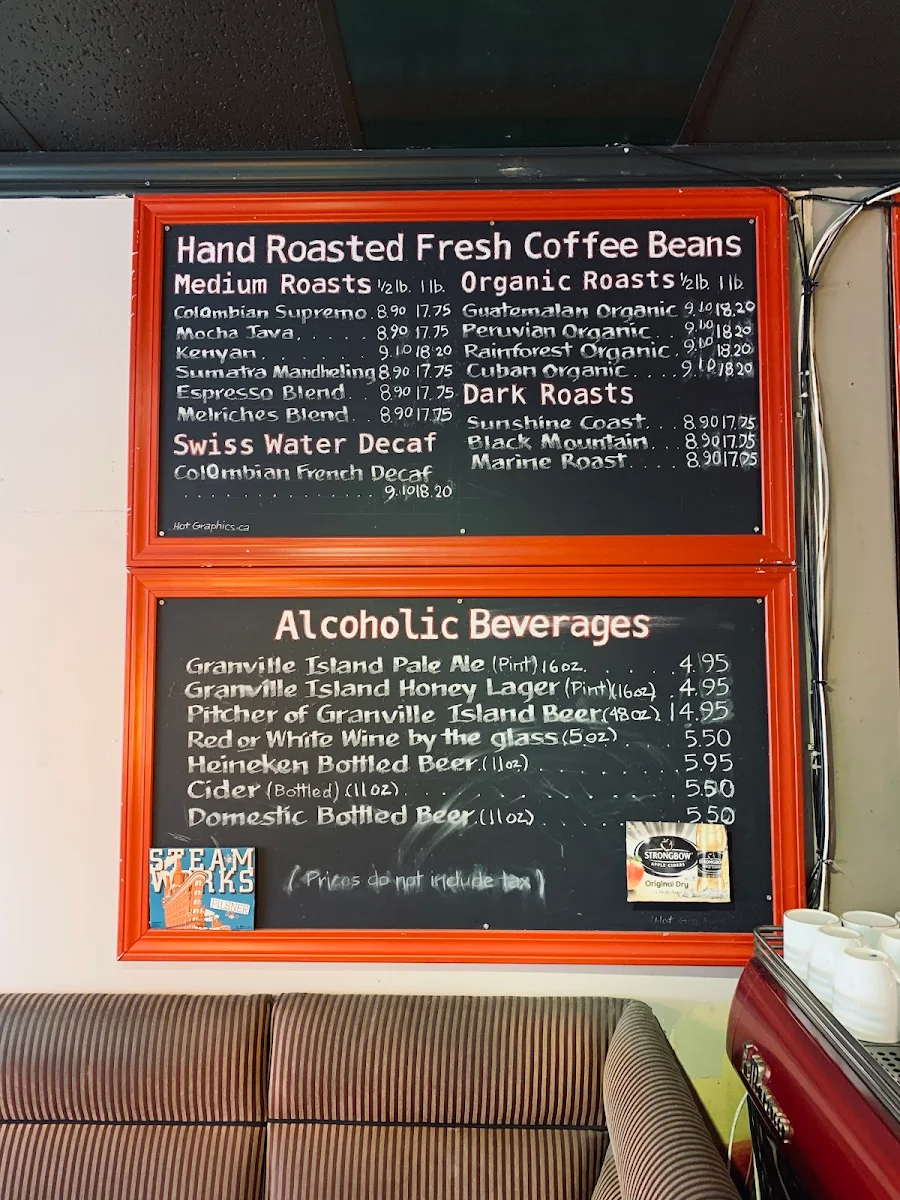 Hand Roasted Fresh Coffee Beans
Medium Roasts 1/2 lb. 1 lb.
Colombian Supremo. 8.90 17.75
Mocha Java. . . . . . 8.90 17.75
Kenyan . . . . . . . 9.10 18.20
Sumatra Mandheling 8.90 17.75
Espresso Blend. . . 8.90 17.75
Melriches Blend. . . 8.90 17.75
Swiss Water Decaf
Colombian French Decaf
. . . . . . . . . . . . . . . . 9.10 18.20
HotGraphics.ca
Organic Roasts 1/2 lb. 1 lb.
Guatemalan Organic 9.10 18.20
Peruvian Organic . . 9.10 18.20
Rainforest Organic . 9.10 18.20
Cuban Organic. . . . . 9.10 18.20
Dark Roasts
Sunshine Coast. . . 8.90 17.75
Black Mountain. . . 8.90 17.75
Marine Roast. . . . . 8.90 17.75
Alcoholic Beverages
Granville Island Pale Ale (Pint) 16 oz. . . . . 4.95
Granville Island Honey Lager (Pint) (16oz) . 4.95
Pitcher of Granville Island Beer (48 oz). 14.95
Red or White Wine by the glass (5 oz) . . . . 5.50
Heineken Bottled Beer. (11oz) . . . . . . . . . 5.95
Cider (Bottled) (11 oz). . . . . . . . . . . . . . 5.50
Domestic Bottled Beer. (11 oz) . . . . . . . . . 5.50
(Prices do not include tax)
STEAM
WORKS
PILSNER
STRONGBOW
APPLE CIDERS
Original Dry
STRONGBOW